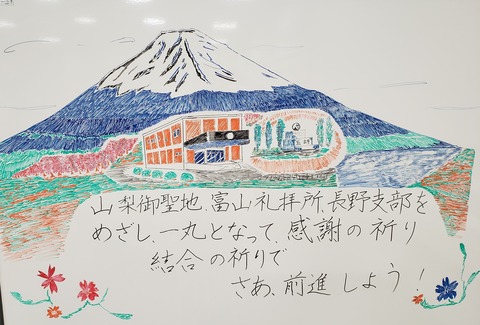 山梨御聖地、富山礼拝所、長野支部を
めざし、一丸となって、感謝の祈り
結合の祈りで
さあ、前進しよう!